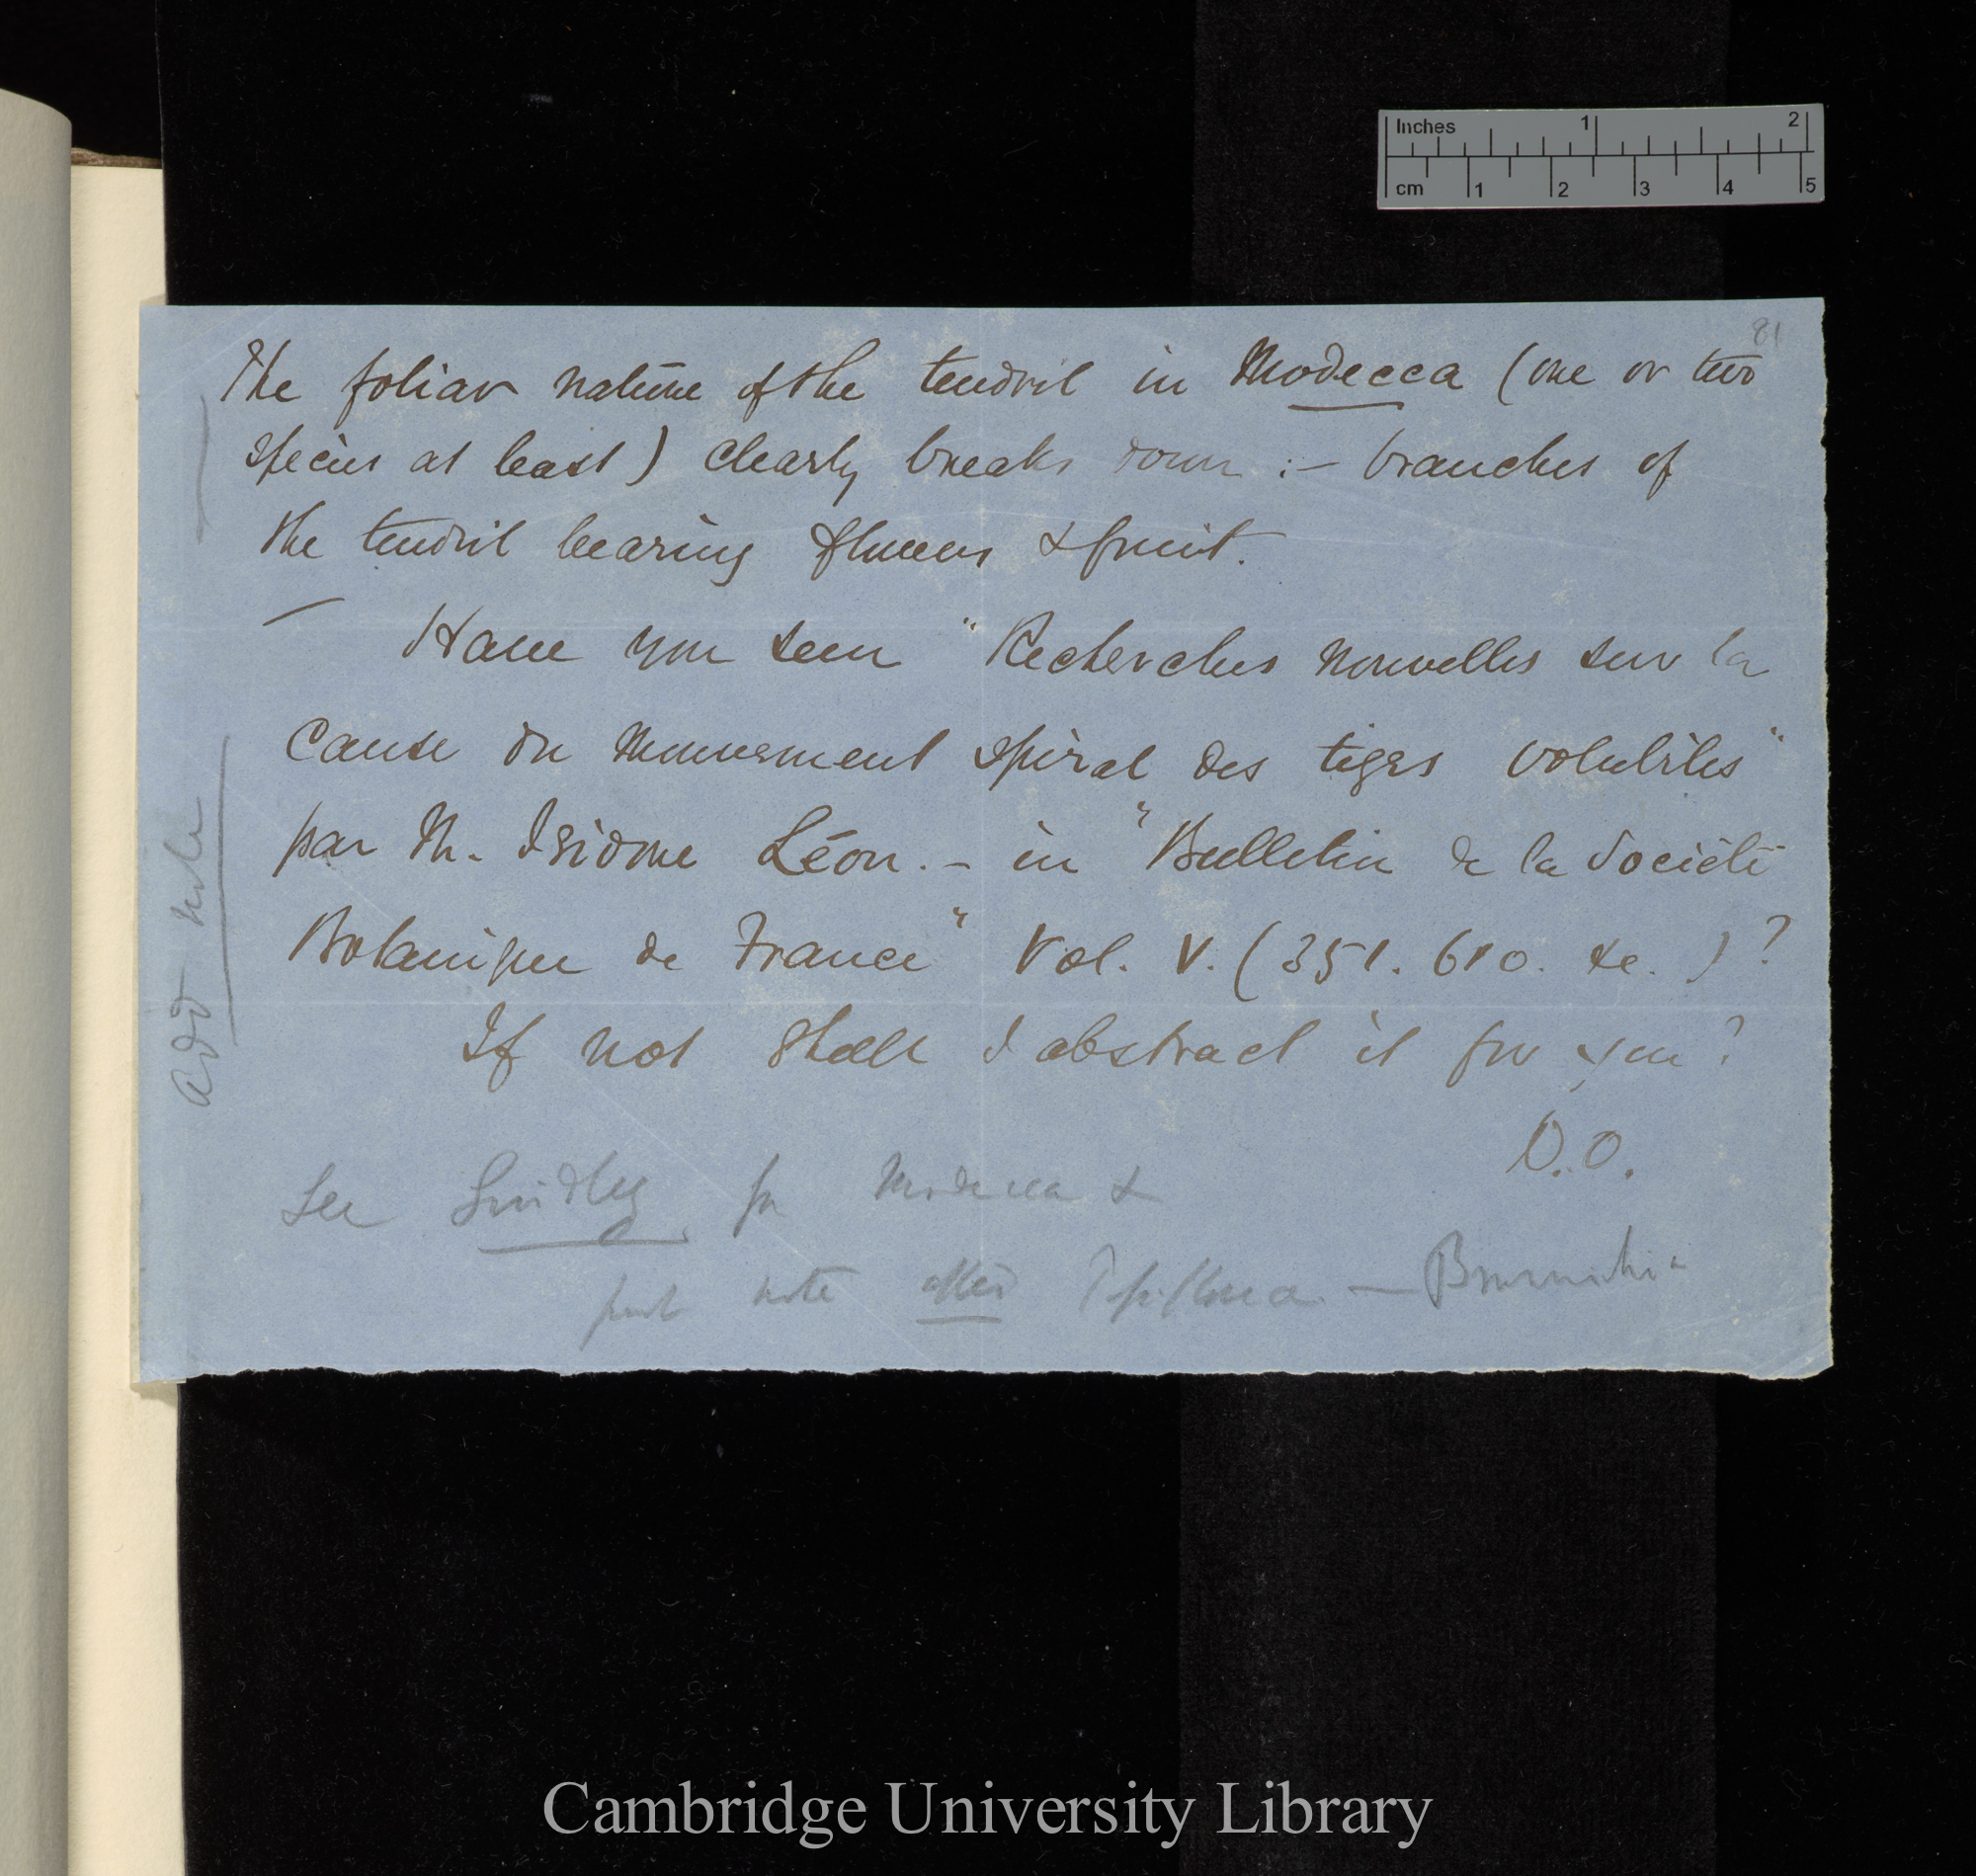 Inches 1 2
cm 1 2 3 4 5
81
The foliar nature of the tendril in Modecca (one or two
species at least) clearly breaks down :— branches of
the tendril bearing flowers & fruit.
— Have you seen "Recherches nouvelles sur la
Cause du mouvement spiral des tiges volubiles"
par M. Isidore Léon. — in "Bulletin de la Société
Botanique de France" Vol. V. (351. 610. &c. )?
If not shall I abstract it for you?
D.O.
Add note
See Lindley for Modecca &
put note after — Brunnichia
Cambridge University Library